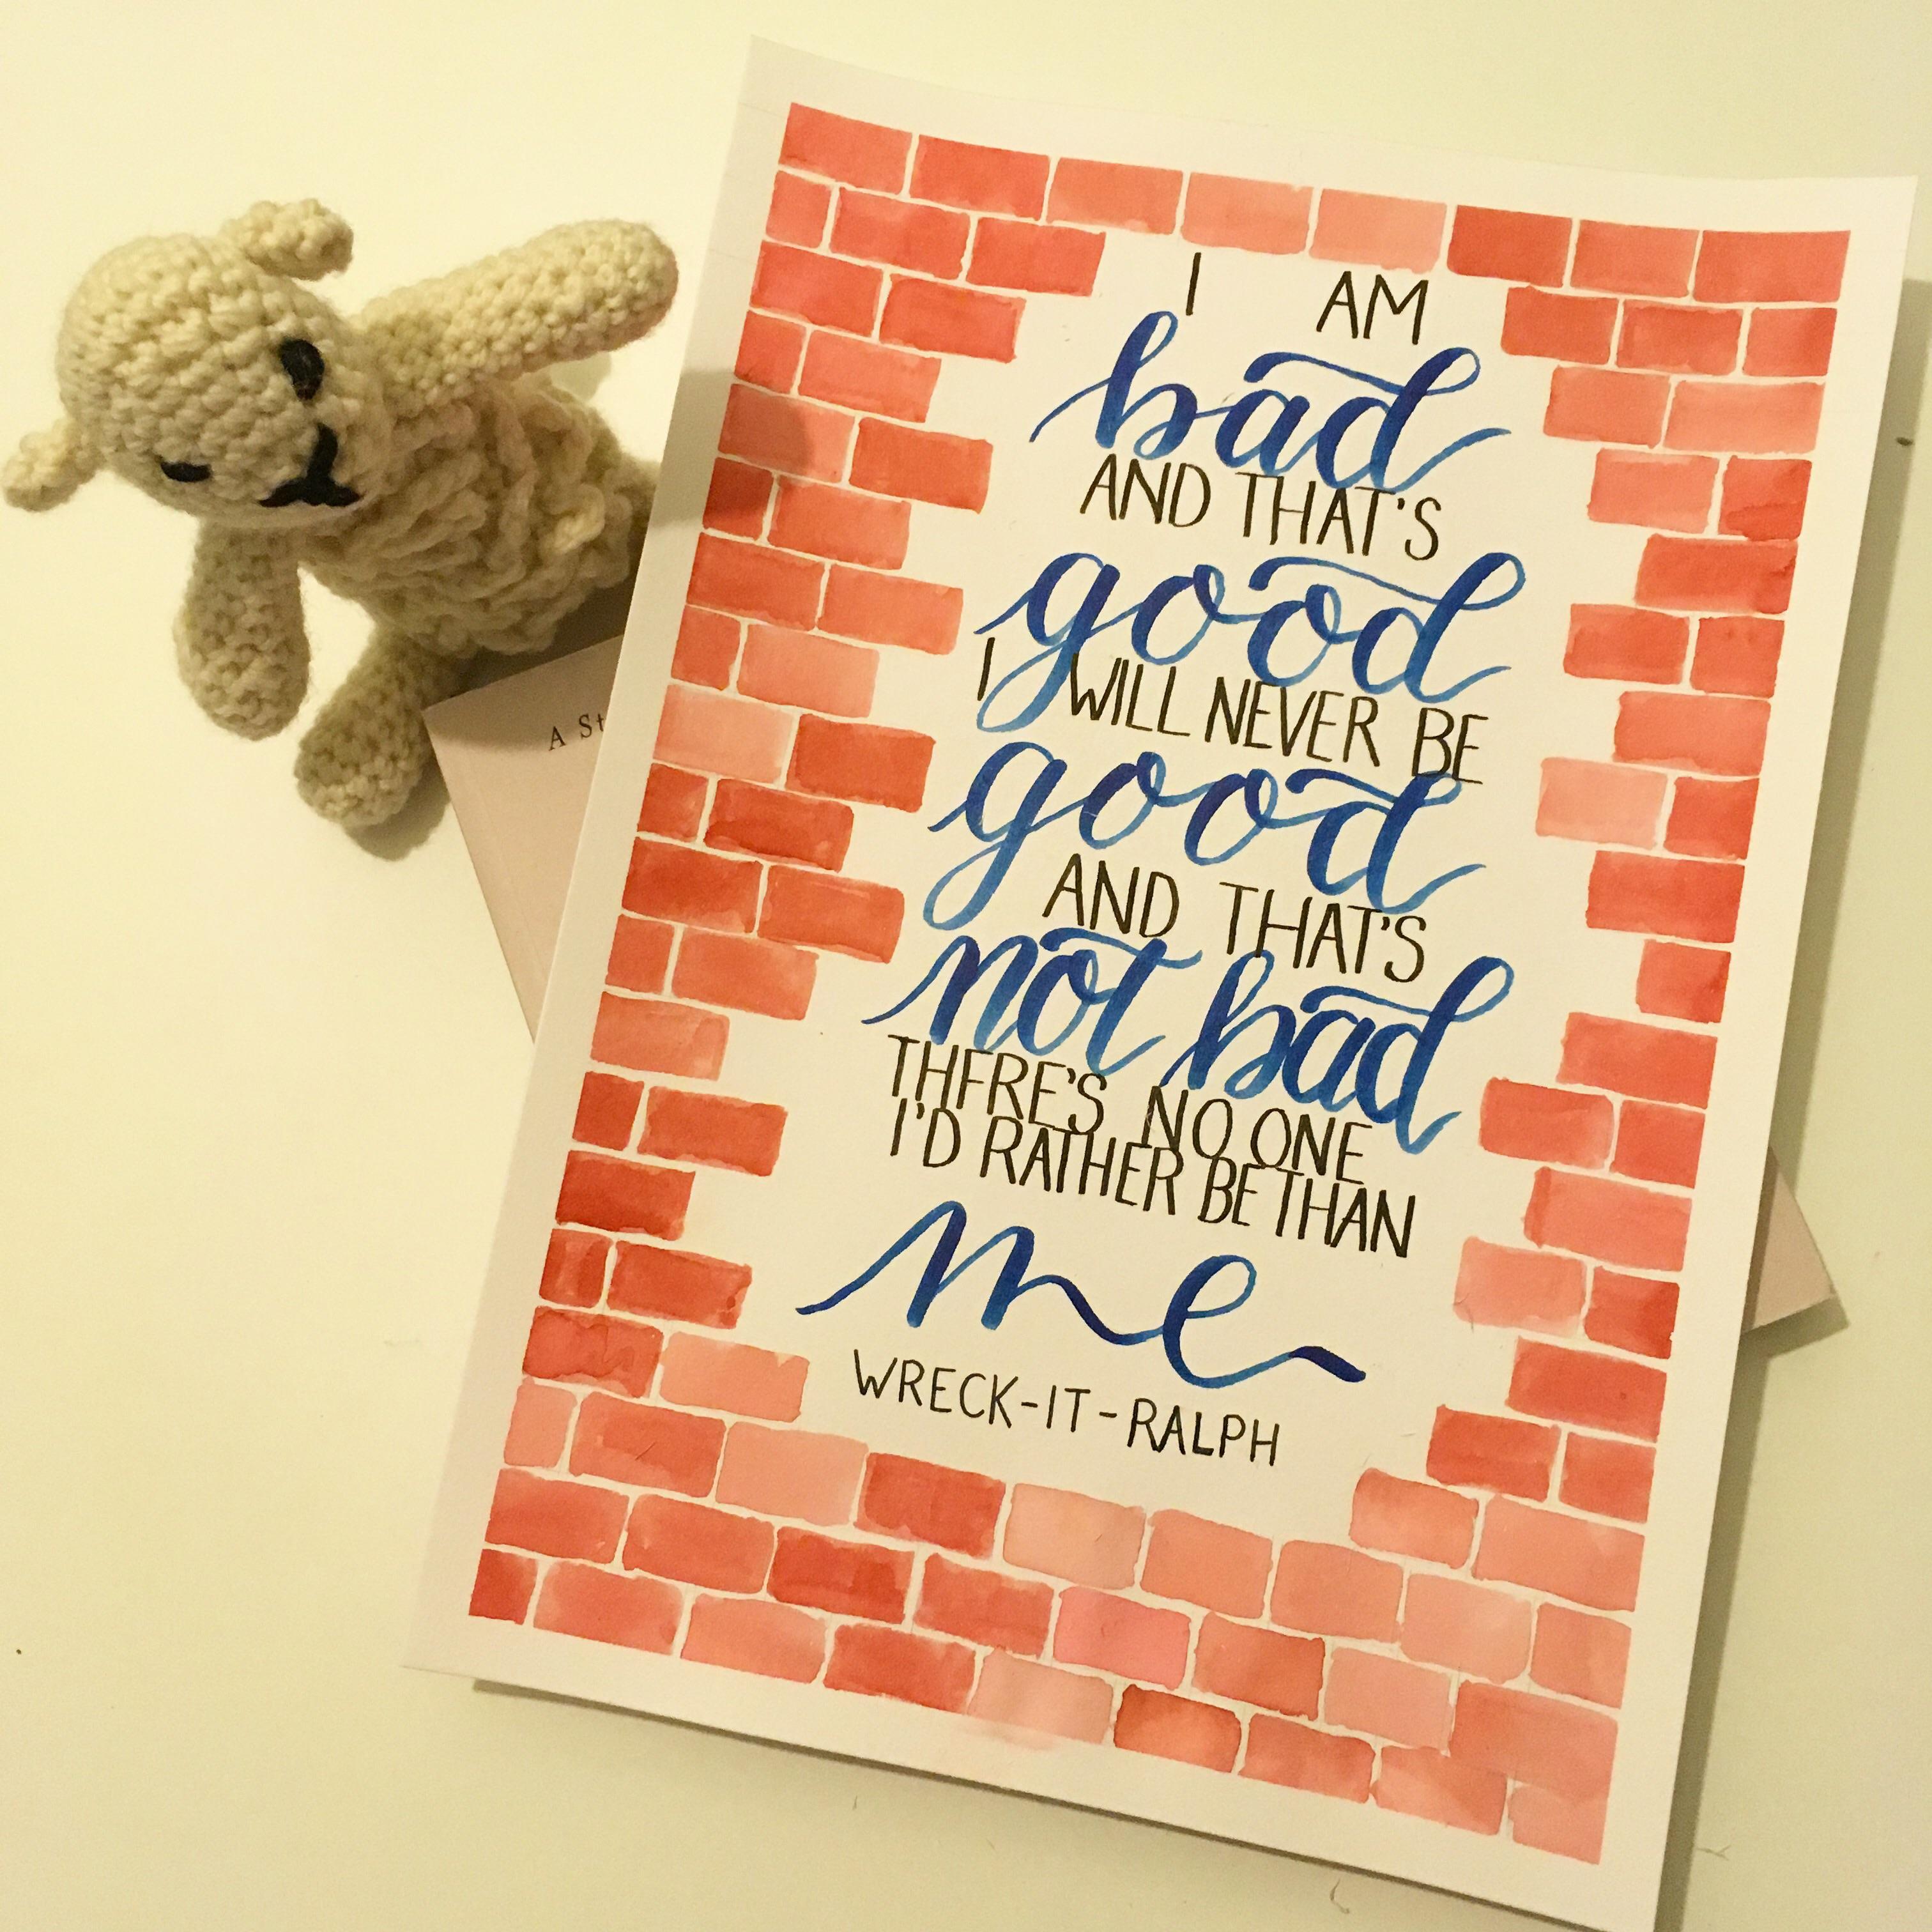 I AM
bad
AND THAT'S
good
I WILL NEVER BE
good
AND THAT'S
not bad
THERE'S NO ONE
I'D RATHER BE THAN
me
WRECK-IT-RALPH
A